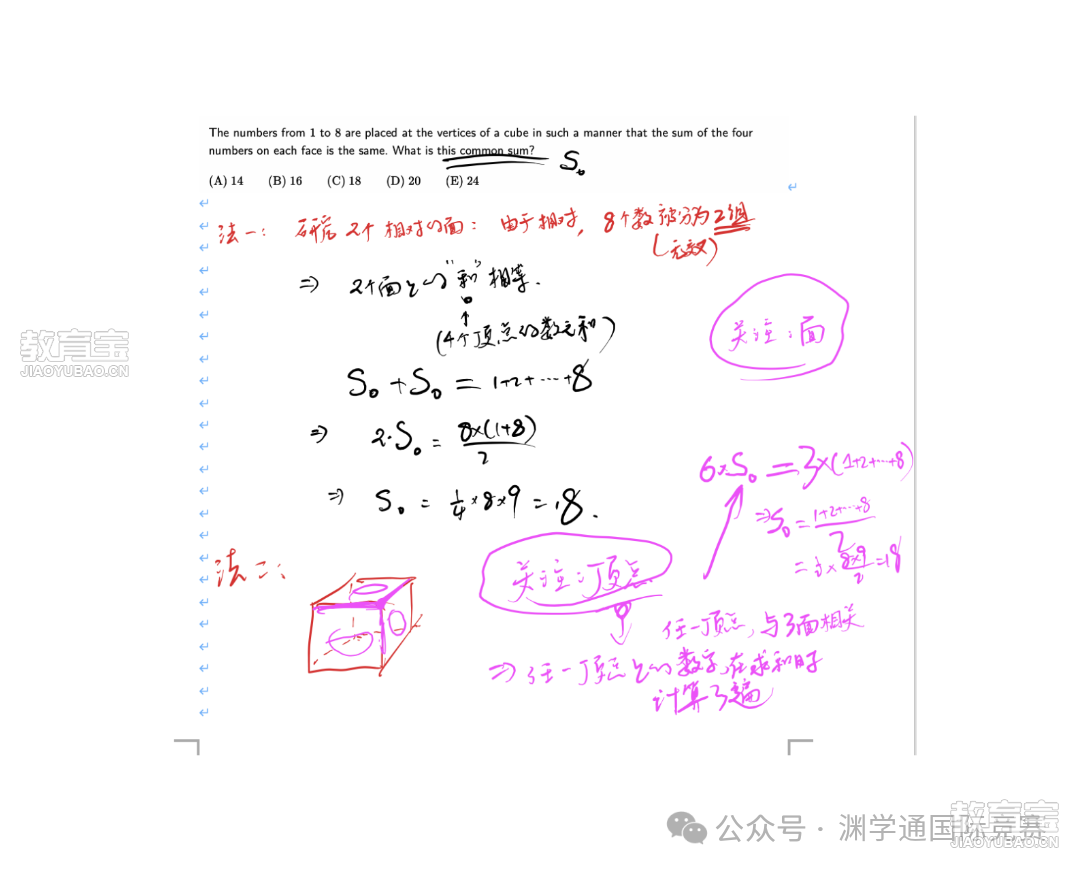 The numbers from 1 to 8 are placed at the vertices of a cube in such a manner that the sum of the four
numbers on each face is the same. What is this common sum? S₀
(A) 14 (B) 16 (C) 18 (D) 20 (E) 24
法一: 研究 2个相对的面: 由于相对, 8个数被分为2组
⇒ 2个面上的"和"相等.
(4个顶点的数之和)
关注:面
S₀ + S₀ = 1+2+⋯+8
⇒ 2·S₀ = 8×(1+8)/2
⇒ S₀ = 1/4×8×9 = 18.
6×S₀ = 3×(1+2+⋯+8)
⇒ S₀ = 1+2+⋯+8/2
法二:
关注:顶点
任一顶点, 与3面相关
⇒ 任一顶点上的数字, 在求和时
计算3遍
教育宝
JIAOYUBAO.CN
公众号 · 渊学通国际竞赛
教育宝
JIAOYUBAO.CN